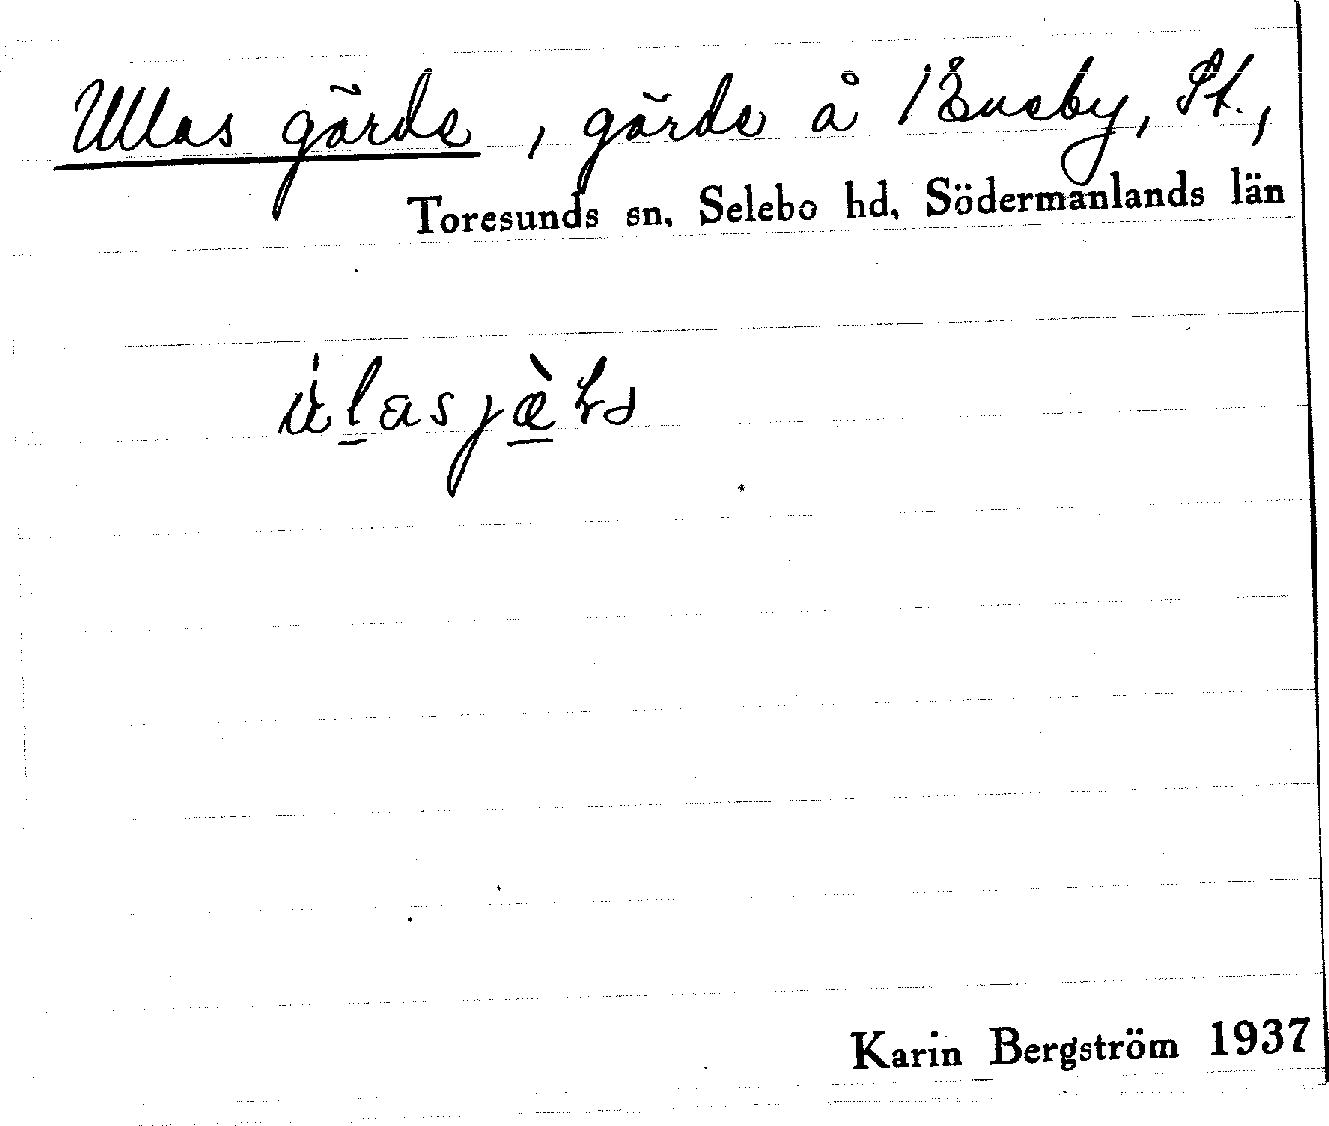 Ullas gärde, gärde å 1 Eneby, St.,
Toresunds sn, Selebo hd, Södermanlands län
Karin Bergström 1937